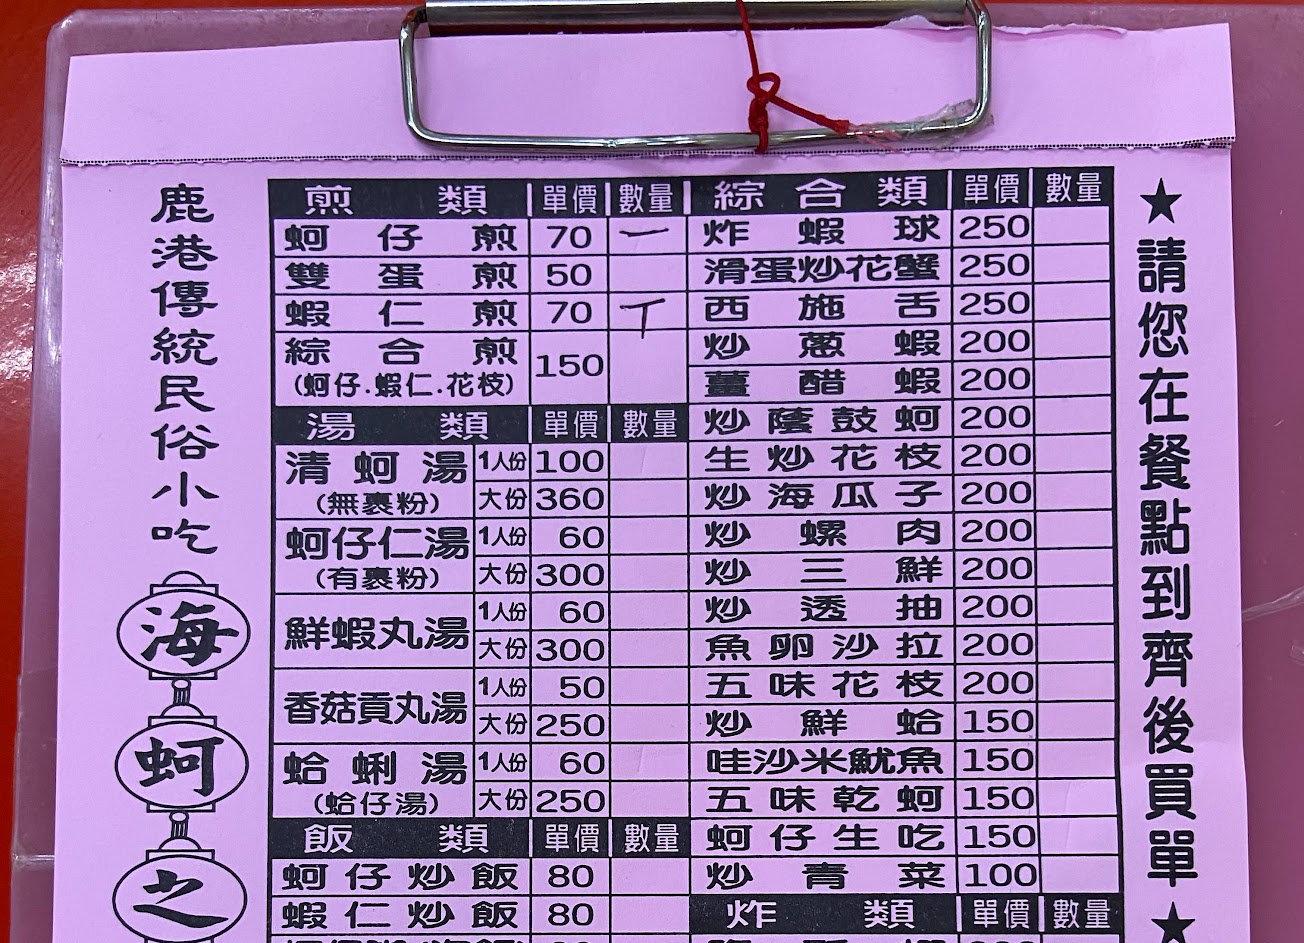 鹿港傳統民俗小吃
海蚵之
煎類 單價 數量
蚵仔煎 70 一
雙蛋煎 50
蝦仁煎 70 丅
綜合煎 150
(蚵仔.蝦仁.花枝)
湯類 單價 數量
清蚵湯 1人份 100
(無裹粉) 大份 360
蚵仔仁湯 1人份 60
(有裹粉) 大份 300
鮮蝦丸湯 1人份 60
大份 300
香菇貢丸湯 1人份 50
大份 250
蛤蜊湯 1人份 60
(蛤仔湯) 大份 250
飯類 單價 數量
蚵仔炒飯 80
蝦仁炒飯 80
綜合類 單價 數量
炸蝦球 250
滑蛋炒花蟹 250
西施舌 250
炒蔥蝦 200
薑醋蝦 200
炒蔭鼓蚵 200
生炒花枝 200
炒海瓜子 200
炒螺肉 200
炒三鮮 200
炒透抽 200
魚卵沙拉 200
五味花枝 200
炒鮮蛤 150
哇沙米魷魚 150
五味乾蚵 150
蚵仔生吃 150
炒青菜 100
炸類 單價 數量
★請您在餐點到齊後買單★